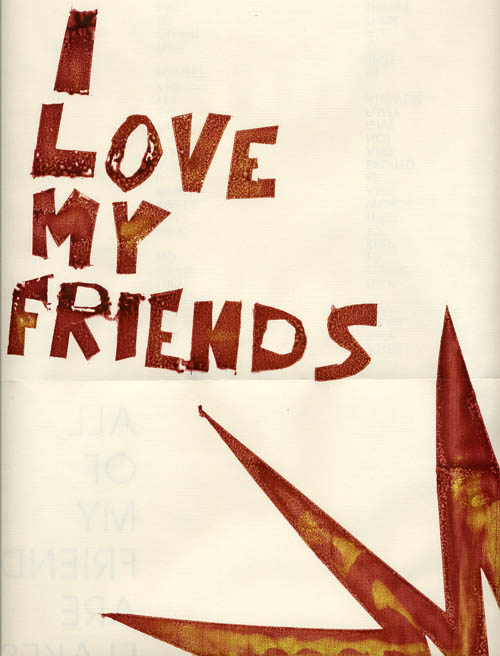 I
LOVE
MY
FRIENDS
ALL
OF
MY
FRIEND
ARE
FLAKES